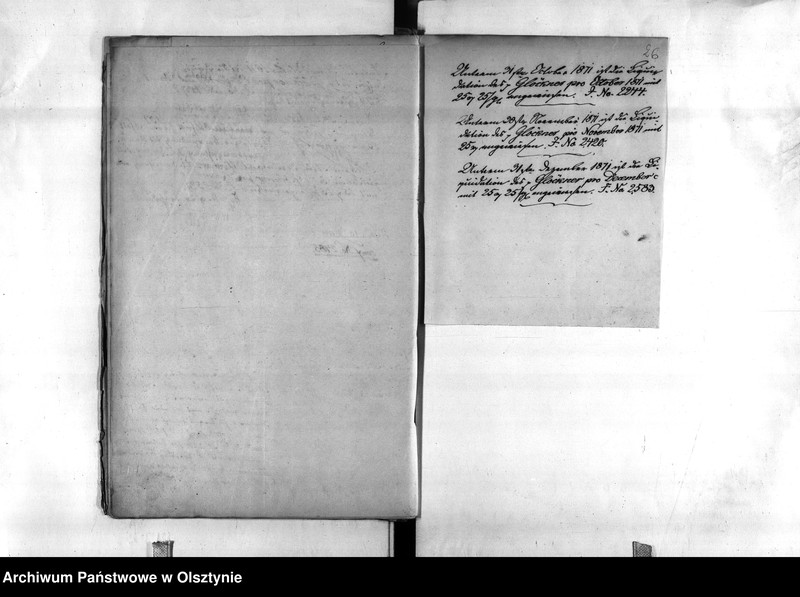 26
Unterm 31ten October 1871 ist die Liqui-
dation des p Glöckner pro October 1871 mit
25 r 25 sg. angewiesen. J. No. 2244.
Unterm 30ten November 1871 ist die Liqui-
dation des p Glöckner pro November 1871 mit
25 r angewiesen. J. No 2420.
Unterm 31ten Dezember 1871 ist die Li-
quidation des p Glöckner pro Dezember c
mit 25 r 25 sg. angewiesen. J. No 2583.
Archiwum Państwowe w Olsztynie